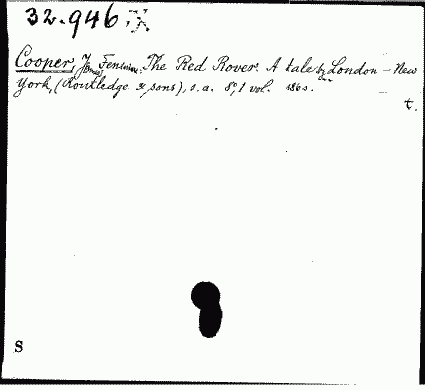 32.946
Cooper, James Fenimore. The Red Rover. A tale by London – New
York, (Routledge & sons), s. a. 8°, 1 vol.
t.
S